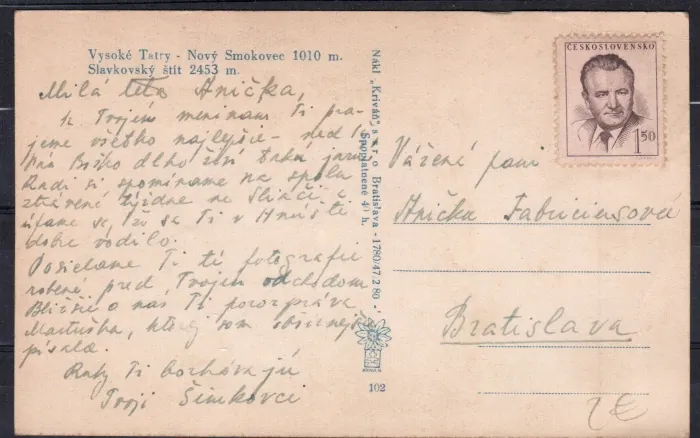 Vysoké Tatry - Nový Smokovec 1010 m.
Slavkovský štít 2453 m.
Milá teta Anička,
k Tvojim meninám Ti pra-
jeme všetko najlepšie - nech
Boško dlho živí takú
Radi si spomíname na spolu
ztrávené týždne na Sliači a
úfame sa, že sa Ti v Hnúšti
dobre vodilo.
Posielame Ti tú fotografiu
robenú pred Tvojím odchodom
Bližšie o nás Ti porozpráva
Martuška, ktorej som obšírnejšie
písala.
Ruky Ti bozkávajú
Tvoji Šimkovci
Nákl. „Kriváň“ s. s r. o. Bratislava - 1780/47.2 80.
Spoplatnené 4 h.
102
ČESKOSLOVENSKO
1.50
Vážená pani
Anička Fabriciusová
Bratislava
2€